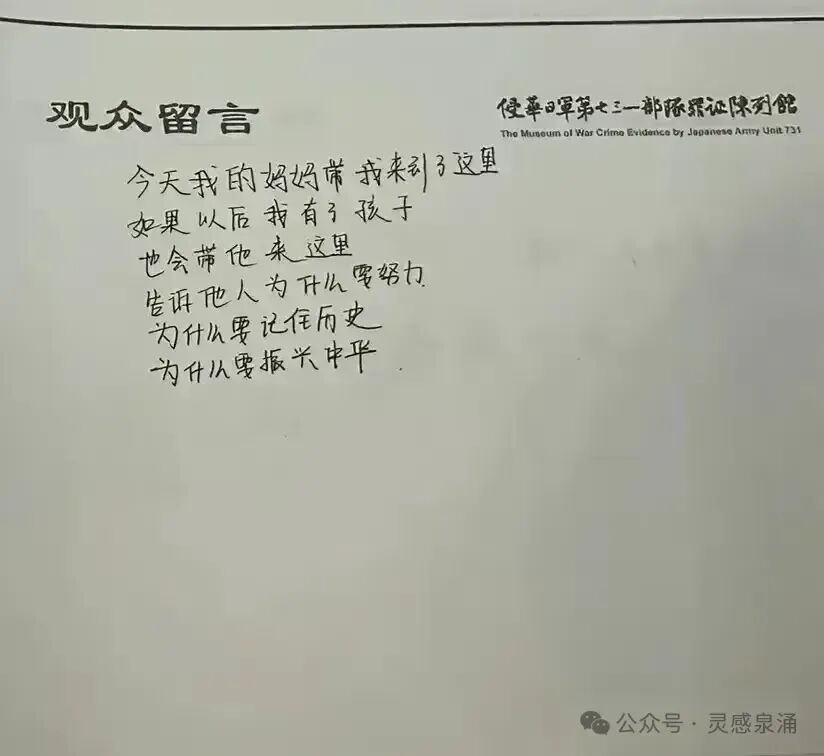 观众留言
侵華日軍第七三一部隊罪证陳列館
The Museum of War Crime Evidence by Japanese Army Unit 731
今天我的妈妈带我来到了这里
如果以后我有了孩子
也会带他来这里
告诉他人为什么要努力
为什么要记住历史
为什么要振兴中华
公众号·灵感泉涌